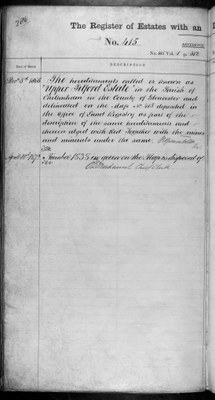 The Register of Estates with an
No. 415.
REFERENCE
Date of Deed
DESCRIPTION
The hereditaments called or known as
"Upper Filford Estate" in the Parish of
Cheltenham in the County of Gloucester and
delineated on the Map No 415 deposited in
the Office of Land Registry as part of the
description of the same hereditaments and
thereon edged with Red Together with the mines
and minerals under the same.
Number 1855 on green on the Map is disposed of
Chief Clerk